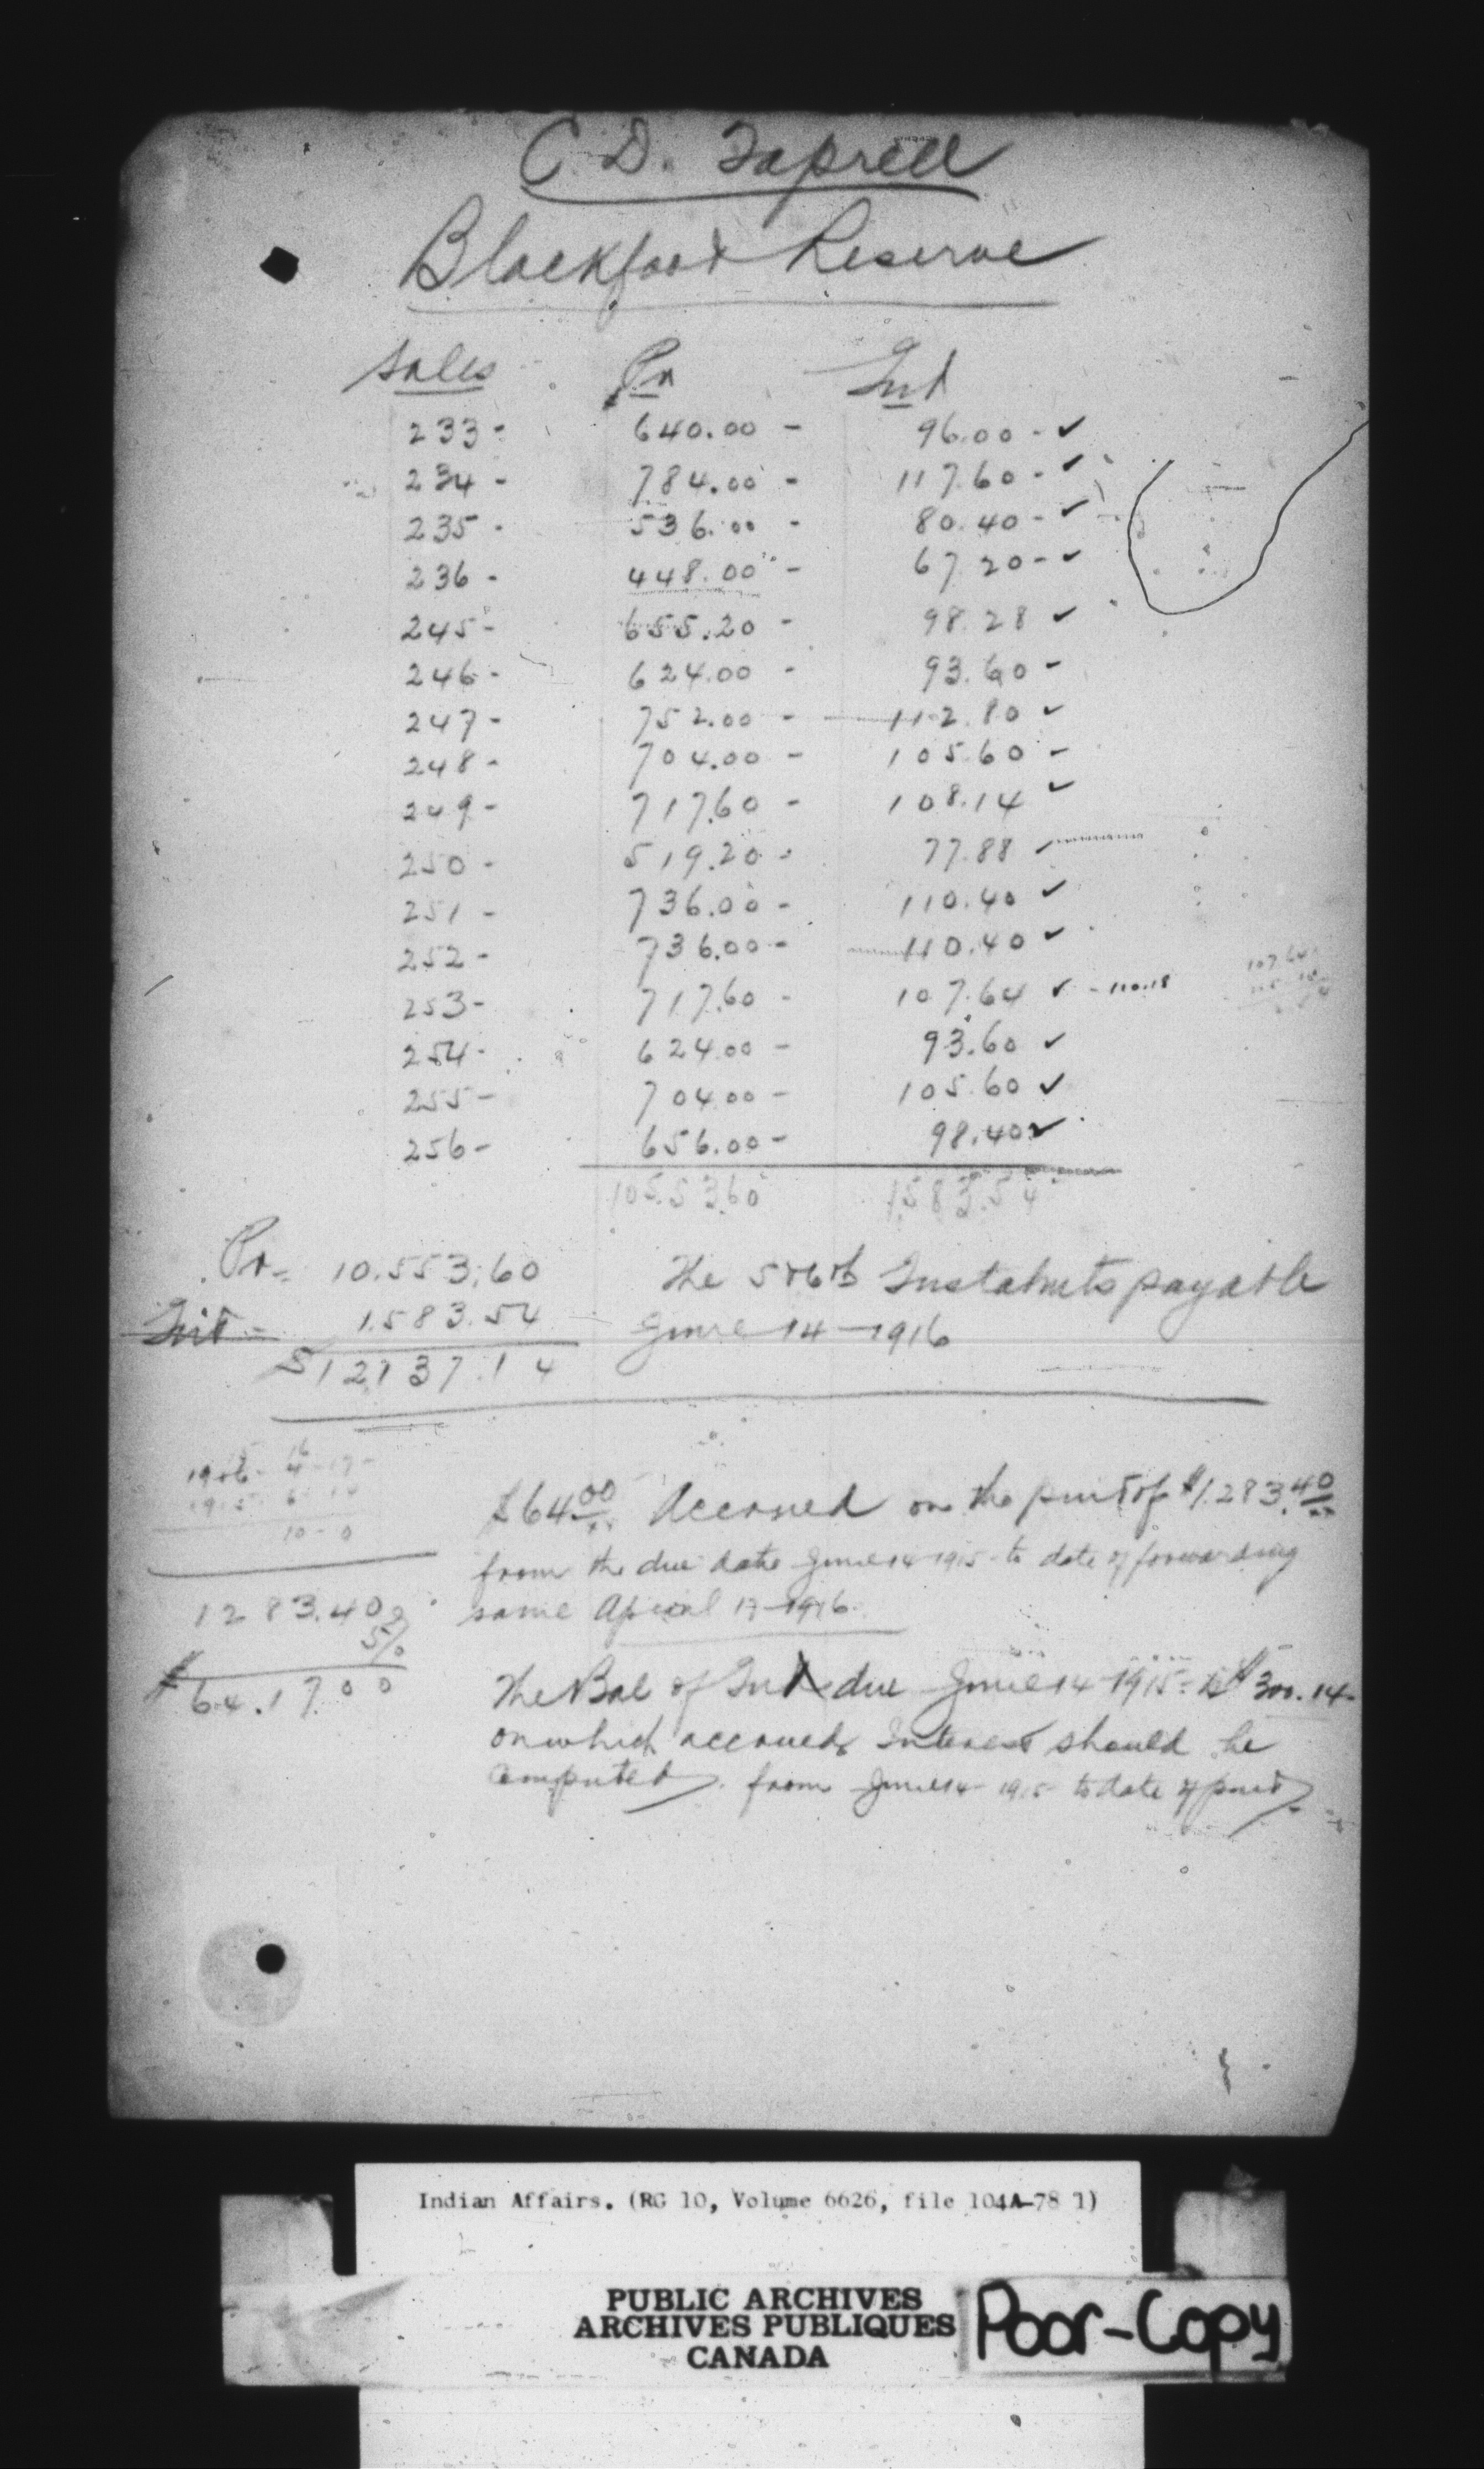 C. D. Taprell
Blackfoot Reserve
Sales Pr Int
233 - 640.00 - 96.00 - ✓
234 - 784.00 - 117.60 - ✓
235 - 536.00 - 80.40 - ✓
236 - 448.00 - 67.20 - ✓
245 - 655.20 - 98.28 ✓
246 - 624.00 - 93.60 -
247 - 752.00 - 112.80 ✓
248 - 704.00 - 105.60 -
249 - 717.60 - 108.14 ✓
250 - 519.20 - 77.88 ✓
251 - 736.00 - 110.40 ✓
252 - 736.00 - 110.40 ✓
253 - 717.60 - 107.64 ✓ - 110.18
254 - 624.00 - 93.60 ✓
255 - 704.00 - 105.60 ✓
256 - 656.00 - 98.40 ✓
10553.60 1583.54
Pr = 10.553.60 The 5 & 6th Instalmts payable
Int - 1.583.54 June 14 - 1916
$12137.14
10 - 0
$64.00 Accrued on the pmt of $1.283.40
from the due date June 14 1915 to date of forwarding
1283.40 same April 17 - 1916
5%
$64.1700 The Bal of Int due June 14 - 1915 - is $300.14 -
on which accrued Interest should be
computed from June 14 - 1915 to date of pmt
Indian Affairs. (RG 10, Volume 6626, file 104A-78 1)
PUBLIC ARCHIVES
ARCHIVES PUBLIQUES
CANADA
Poor-Copy